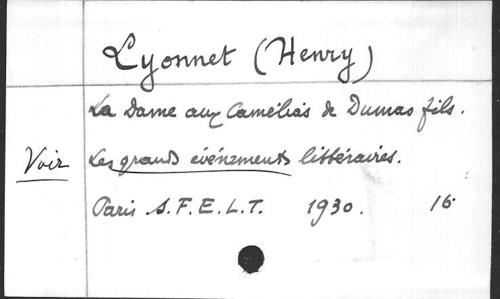 Lyonnet (Henry)
La Dame aux Camélias de Dumas fils.
Voir Les grands événements littéraires.
Paris S.F.E.L.T. 1930. 16